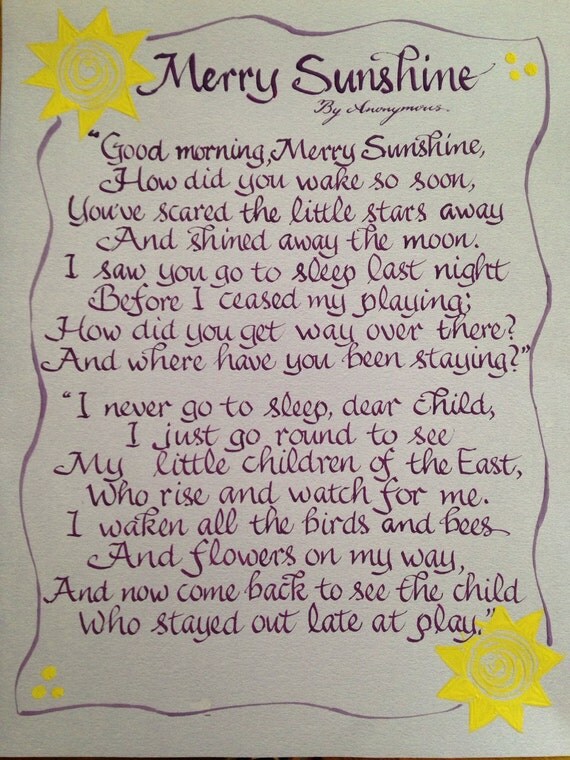 Merry Sunshine
By Anonymous.
"Good morning, Merry Sunshine,
How did you wake so soon,
You've scared the little stars away
And shined away the moon.
I saw you go to sleep last night
Before I ceased my playing;
How did you get way over there?
And where have you been staying?"
"I never go to sleep, dear child,
I just go round to see
My little children of the East,
Who rise and watch for me.
I waken all the birds and bees
And flowers on my way,
And now come back to see the child
Who stayed out late at play."